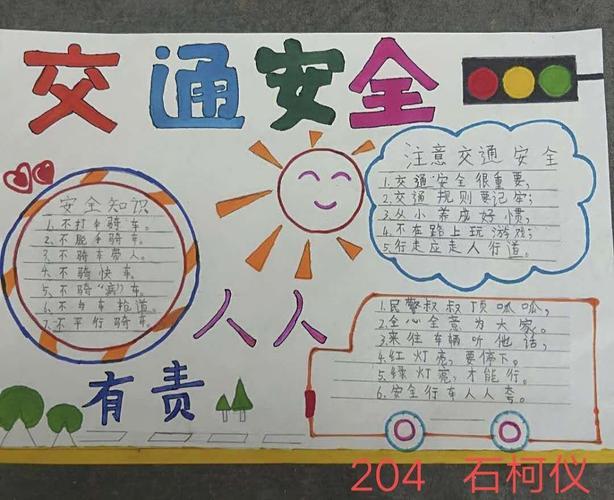 交通安全
安全知识
1.不打伞骑车。
2.不脱手骑车。
3.不骑车带人。
4.不骑快车。
5.不骑“病”车。
6.不与车抢道。
7.不平行骑车。
注意交通安全
1.交通安全很重要,
2.交通规则要记牢;
3.从小养成好惯,
4.不在路上玩游戏;
5.行走应走人行道。
人人
有责
1.民警叔叔顶呱呱,
2.全心全意为大家。
3.来往车辆听他话,
4.红灯亮,要停下。
5.绿灯亮,才能行。
6.安全行车人人夸。
204 石柯仪